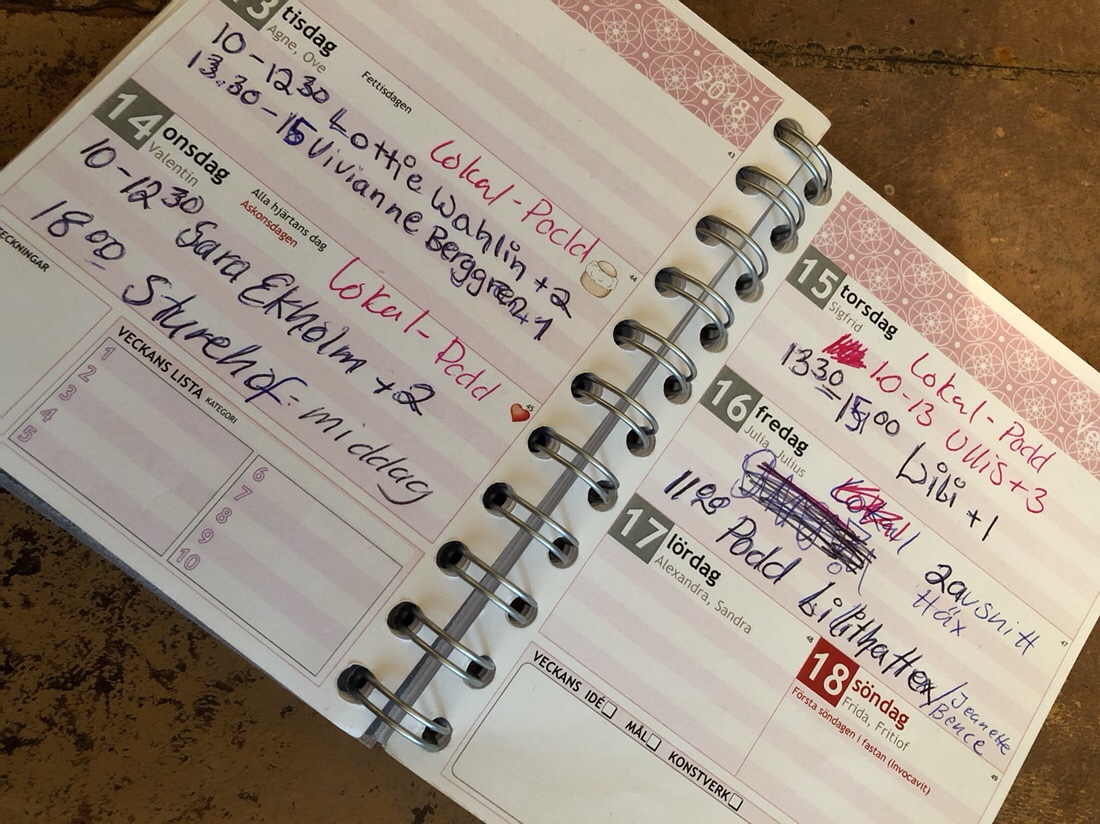 13 tisdag
Agne, Ove
Fettisdagen
10-1230 Lottie Wahlin +2
Lokal-Podd
13.30-15 Vivianne Berggren+1
44
14 onsdag
Valentin
Alla hjärtans dag
Askonsdagen
10-1230 Sara Ekholm +2
Lokal-Podd
18 00 Sturehof-middag
45
TECKNINGAR
VECKANS LISTA KATEGORI
1
2
3
4
5
6
7
8
9
10
2018
43
15 torsdag
Sigfrid
Lokal-Podd
10-13 Ullis+3
1330-1500 Lili +1
16 fredag
Julia, Julius
Lokal
1100 Podd
2avsnitt
Häx
Jeanette
Bence
47
17 lördag
Alexandra, Sandra
48
18 söndag
Frida, Fritiof
Första söndagen i fastan (Invocavit)
49
VECKANS IDÉ MÅL KONSTVERK